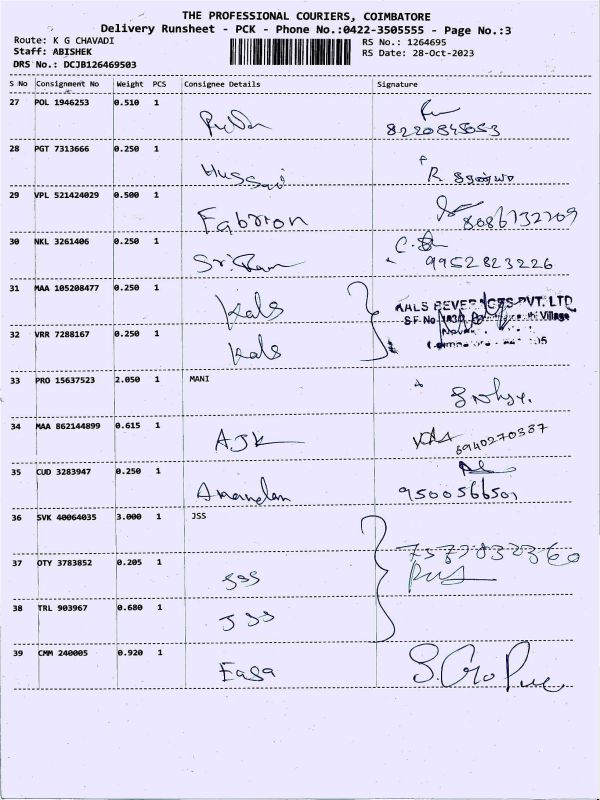 THE PROFESSIONAL COURIERS, COIMBATORE
Delivery Runsheet - PCK - Phone No.:0422-3505555 - Page No.:3
Route: K G CHAVADI RS No.: 1264695
Staff: ABISHEK RS Date: 28-Oct-2023
DRS No.: DCJB126469503
S No Consignment No Weight PCS Consignee Details Signature
27 POL 1946253 0.510 1
8220845053
28 PGT 7313666 0.250 1
Hussai R
29 VPL 521424029 0.500 1
Fabrion 8086732709
30 NKL 3261406 0.250 1
Sri Ram 9952823226
31 MAA 105208477 0.250 1
Kals KALS BEVERAGES PVT. LTD
32 VRR 7288167 0.250 1 Village
Kals
33 PRO 15637523 2.050 1 MANI
34 MAA 862144899 0.615 1
AJK 6940270387
35 CUD 3283947 0.250 1
Anandan 9500566501
36 SVK 40064035 3.000 1 JSS
37 OTY 3783852 0.205 1
SSS
38 TRL 903967 0.680 1
JSS
39 CMM 240005 0.920 1
Easa